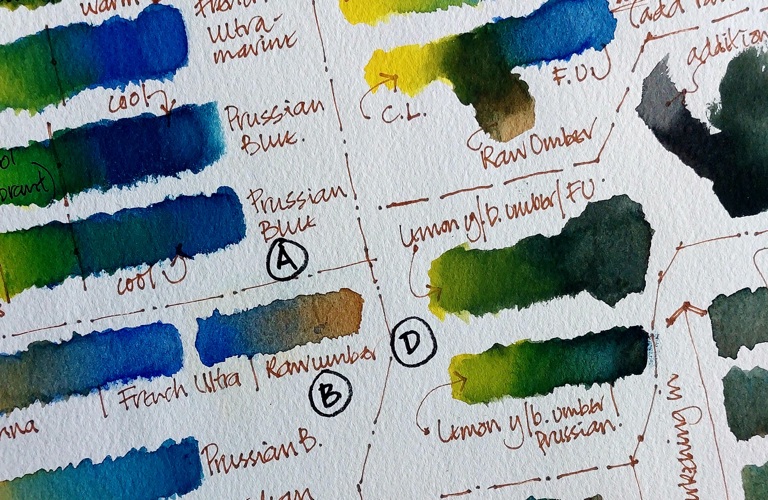 warm
French
Ultra-
marine
cool
Prussian
Blue.
Prussian
Blue
cool
A
French Ultra | Raw umber
B
Prussian B.
C.L.
F.U
Raw Umber
Lemon y/b.umber/FU
D
Lemon y/b.umber/
Prussian.
(add
addition